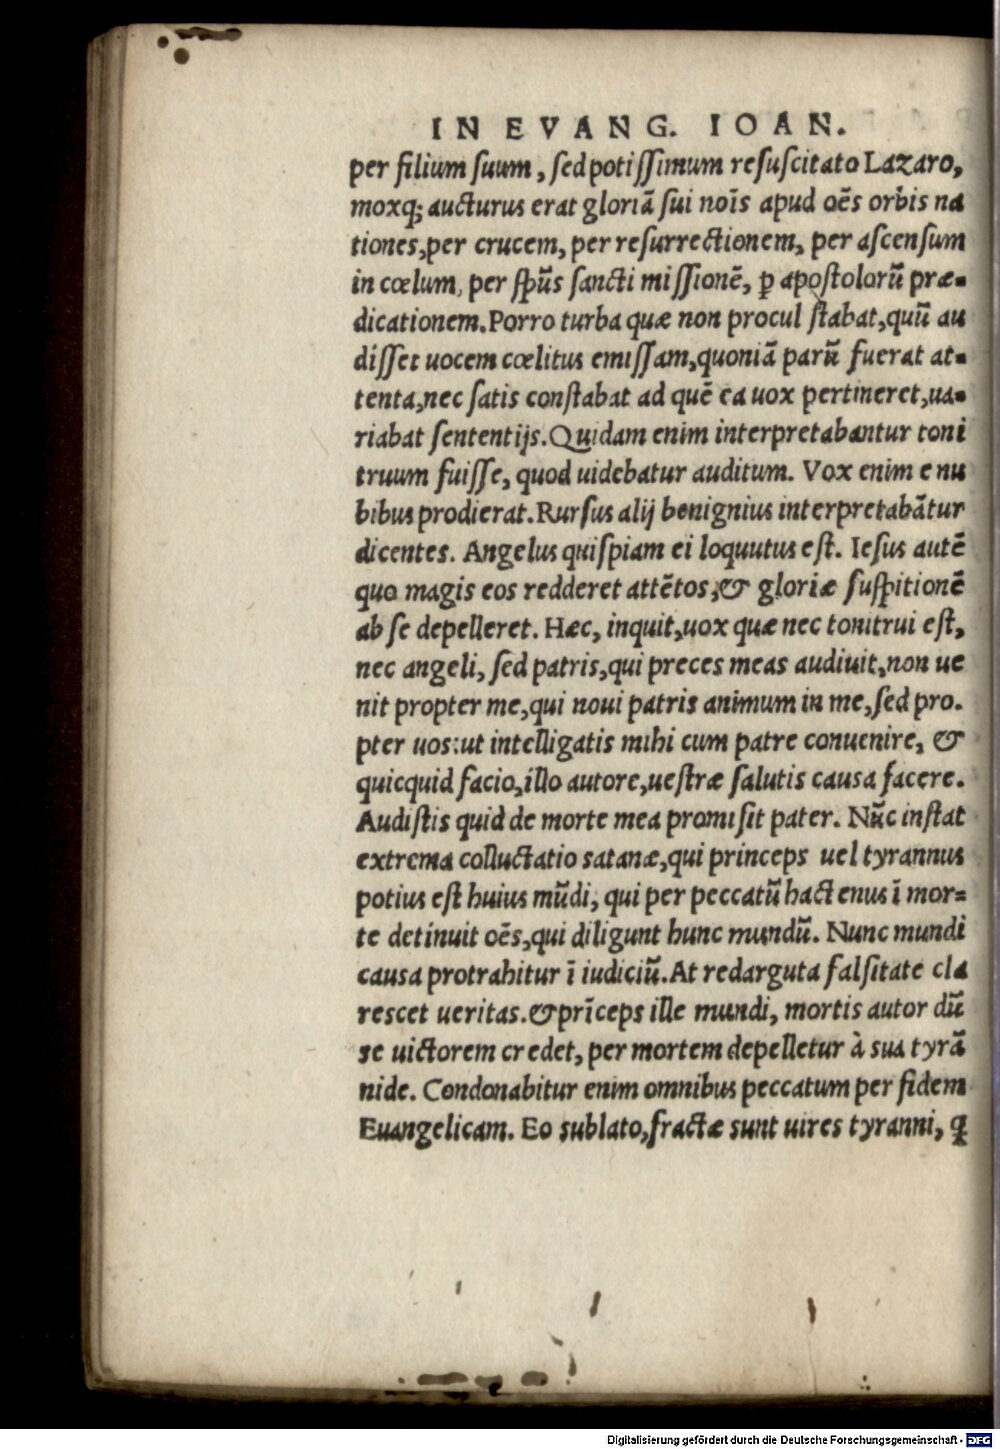 IN EVANG. IOAN.
per filium ſuum, ſed potiſſimum reſuſcitato Lazaro,
moxq; aucturus erat gloriā ſui noīs apud oēs orbis na
tiones, per crucem, per reſurrectionem, per aſcenſum
in cœlum, per ſpūs ſancti miſſionē, ꝑ apoſtolorū præ-
dicationem. Porro turba quæ non procul ſtabat, quū au
diſſet uocem cœlitus emiſſam, quoniā parū fuerat at-
tenta, nec ſatis conſtabat ad quē ea uox pertineret, ua-
riabat ſententijs. Quidam enim interpretabantur toni
truum fuiſſe, quod uidebatur auditum. Vox enim e nu
bibus prodierat. Rurſus alij benignius interpretabātur
dicentes. Angelus quiſpiam ei loquutus eſt. Ieſus autē
quo magis eos redderet attētos, & gloriæ ſuſpitionē
ab ſe depelleret. Hæc, inquit, uox quæ nec tonitrui eſt,
nec angeli, ſed patris, qui preces meas audiuit, non ue
nit propter me, qui noui patris animum in me, ſed pro-
pter uos: ut intelligatis mihi cum patre conuenire, &
quicquid facio, illo autore, ueſtræ ſalutis cauſa facere.
Audiſtis quid de morte mea promiſit pater. Nūc inſtat
extrema colluctatio satanæ, qui princeps uel tyrannus
potius eſt huius mūdi, qui per peccatū hactenus ī mor-
te detinuit oēs, qui diligunt hunc mundū. Nunc mundi
causa protrahitur ī iudiciū. At redarguta falſitate cla
reſcet ueritas. & prīceps ille mundi, mortis autor dū
se uictorem credet, per mortem depelletur à sua tyrā
nide. Condonabitur enim omnibus peccatum per fidem
Euangelicam. Eo sublato, fractæ sunt uires tyranni, q̄
Digitalisierung gefördert durch die Deutsche Forschungsgemeinschaft - DFG